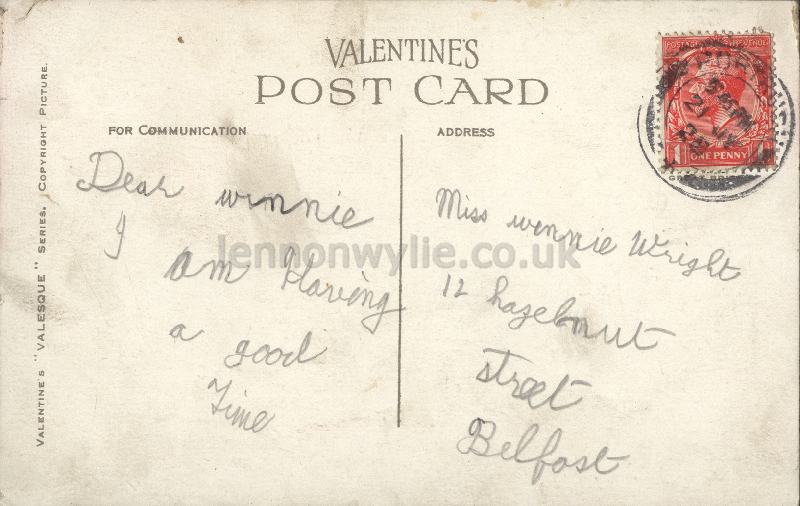 VALENTINE'S
POST CARD
FOR COMMUNICATION
ADDRESS
Dear winnie
I
am Having
a good
Time
Miss winnie Wright
12 hazelnut
street
Belfast
VALENTINE'S "VALESQUE" SERIES. COPYRIGHT PICTURE.
POSTAGE REVENUE
1 ONE PENNY 1
lennonwylie.co.uk